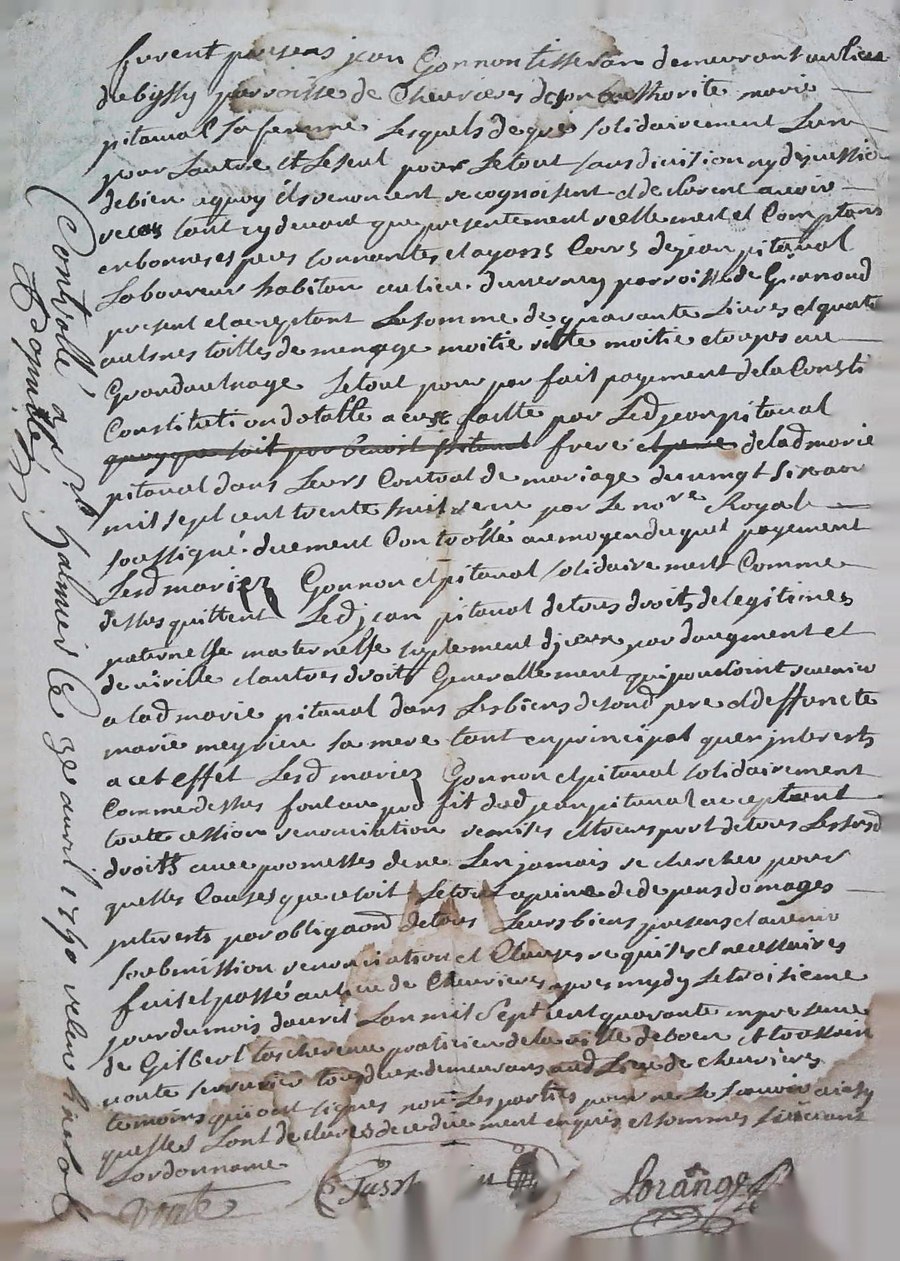 furent presens jean Gonnon tisseran demeurant au lieu
de bissy parroisse de Chevrieres de son authorite marie
pitaval sa femme Lesquels de gre solidairement L'un
pour L'autre et Le seul pour Le tout sans division ny discussion
de bien a quoy ils renoncent recognoissent et declarent avoir
receus tant cy devant que presentement reellement et Comptant
en bonnes especes sonnantes et ayans Cours de jean pitaval
Laboureur habitan au lieu parroisse de Grenond
present et acceptant La somme de quarante Livres et quatre
aulsnes toilles de menage moitie ritte moitie etoupes au
Grand aulnage Le tout pour par fait payement de la Consti
Constitution dotalle a eux faitte par Led jean pitaval
quoyque soit par benoit pitaval frere et pere de lad marie
pitaval dans Leurs Contrat de mariage du vingt six
mil sept cent trente huit receu par Le nore Royal
soussigné duement Controllé au moyen duquel payement
Lesd mariez Gonnon et pitaval solidairement Comme
dessus quittent Led jean pitaval de tous droits de legitimes
paternelle maternelle suplement d'iceux par d'augment et
de virille et autres droits Generallement qui pourroint revenir
a lad marie pitaval dans Les biens de sond pere et deffuncte
marie meyrieu sa mere tant en principal qu'en interests
a cet effet Lesd mariez Gonnon et pitaval solidairement
Comme dessus font au profit dud jean pitaval acceptant
toute cession renonciation remises et transport de tous Lessusd
droits avec promesses de ne L'en jamais rechercher pour
quelles Causes que ce soit Le tout a peine de depens domages
interests par obligaond de tous Leurs biens presens et avenir
soubmission renonciation et Clauses requises et necessaires
fait et passé au lieu de Chevrieres apres mydy Le troisieme
jour du mois davril L'an mil sept cent quarante en presence
de Gilbert praticien de la ville de boen et toussain
vonte serrurier tous deux demeurans aud Lieu de chevrieres
temoins qui ont signes non Les parties pour ne Le scavoir ainsy
quelles L'ont declarés de ce duement enquis et sommes suivant
L'ordonnance
vonte Lorange
Controllé a St galmier Ce 9e avril 1740 receu